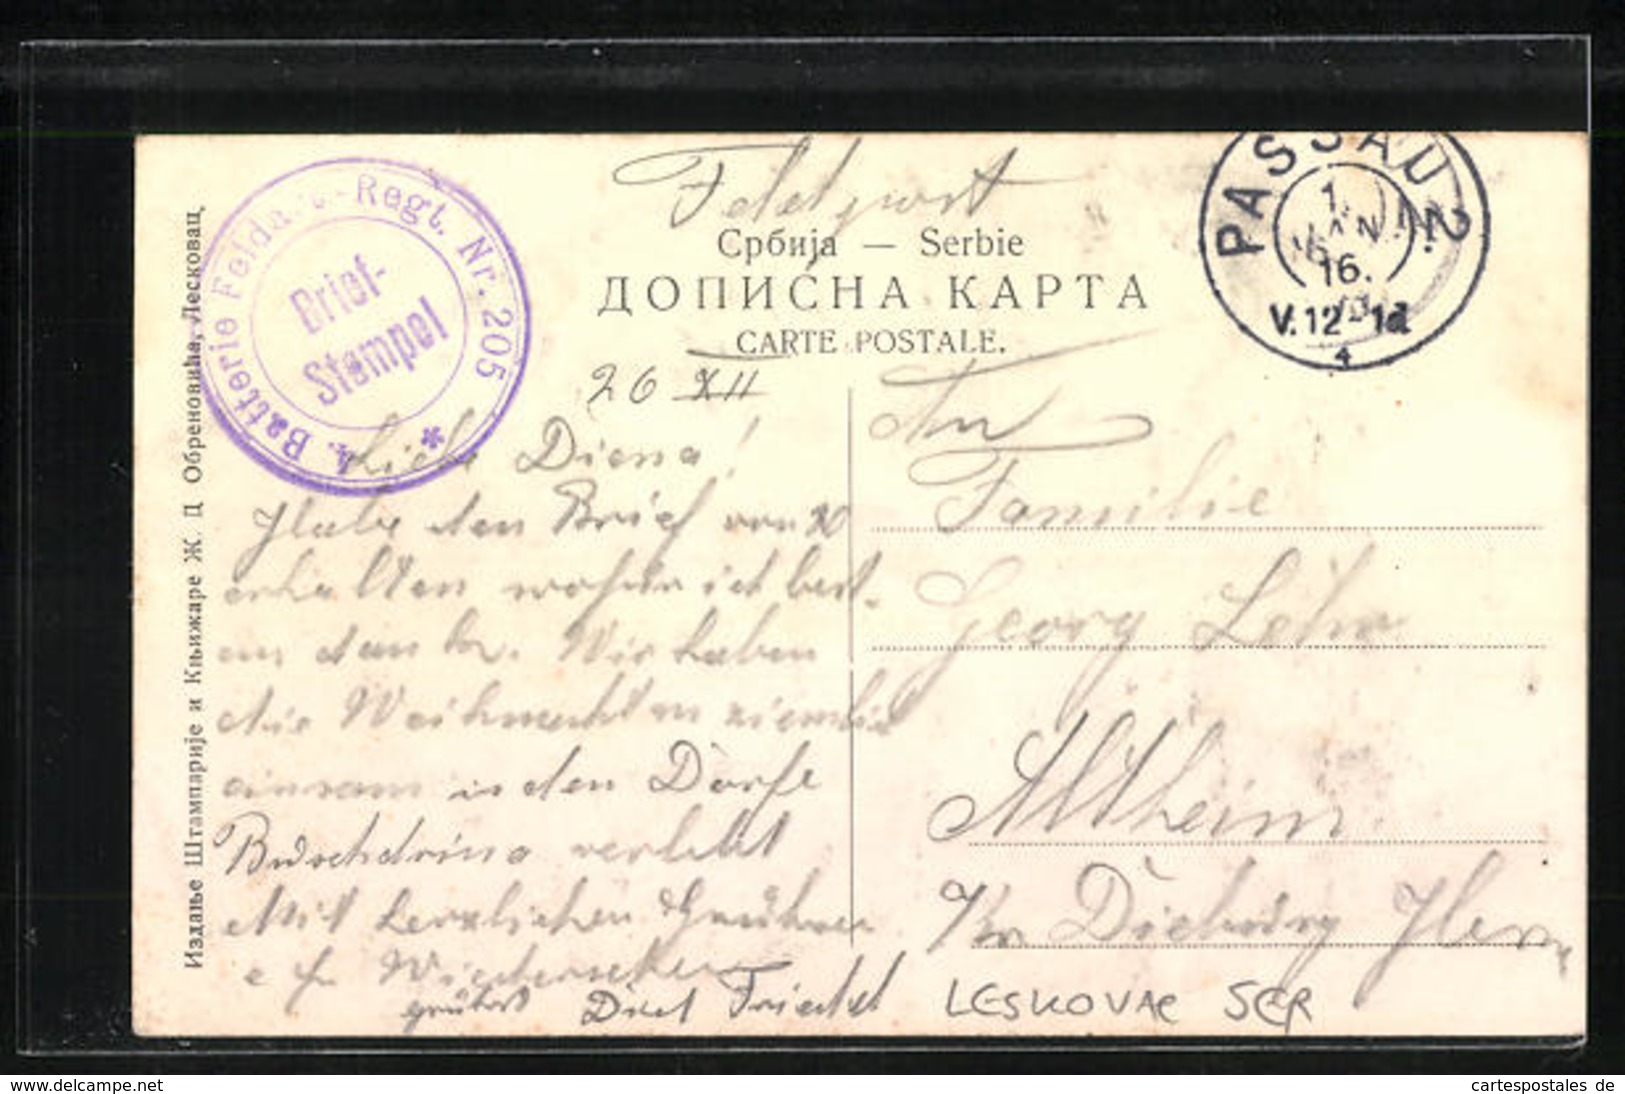 Feldpost
Србија — Serbie
ДОПИСНА КАРТА
CARTE POSTALE.
4. Batterie Feldart.-Regt. Nr. 205
Brief-
Stempel
PASSAU 2
1.
JAN.
16.
V. 12-1
Издање Штампарије и Књижаре Ж. Ц Обреновића, Лесковац
26 XII
Liebe Diena!
Habe den Brief von
erhalten wofür ich best.
danke. Wir haben
die Weihnachten ziemlich
einsam in den Dorfe
verlebt
Mit herzlichen Grüßen
Wiedersehen
grüßt Friedel
An
Familie
Georg
Altheim
Dieburg Hessen
LESKOVAC SER
www.delcampe.net
cartespostales de